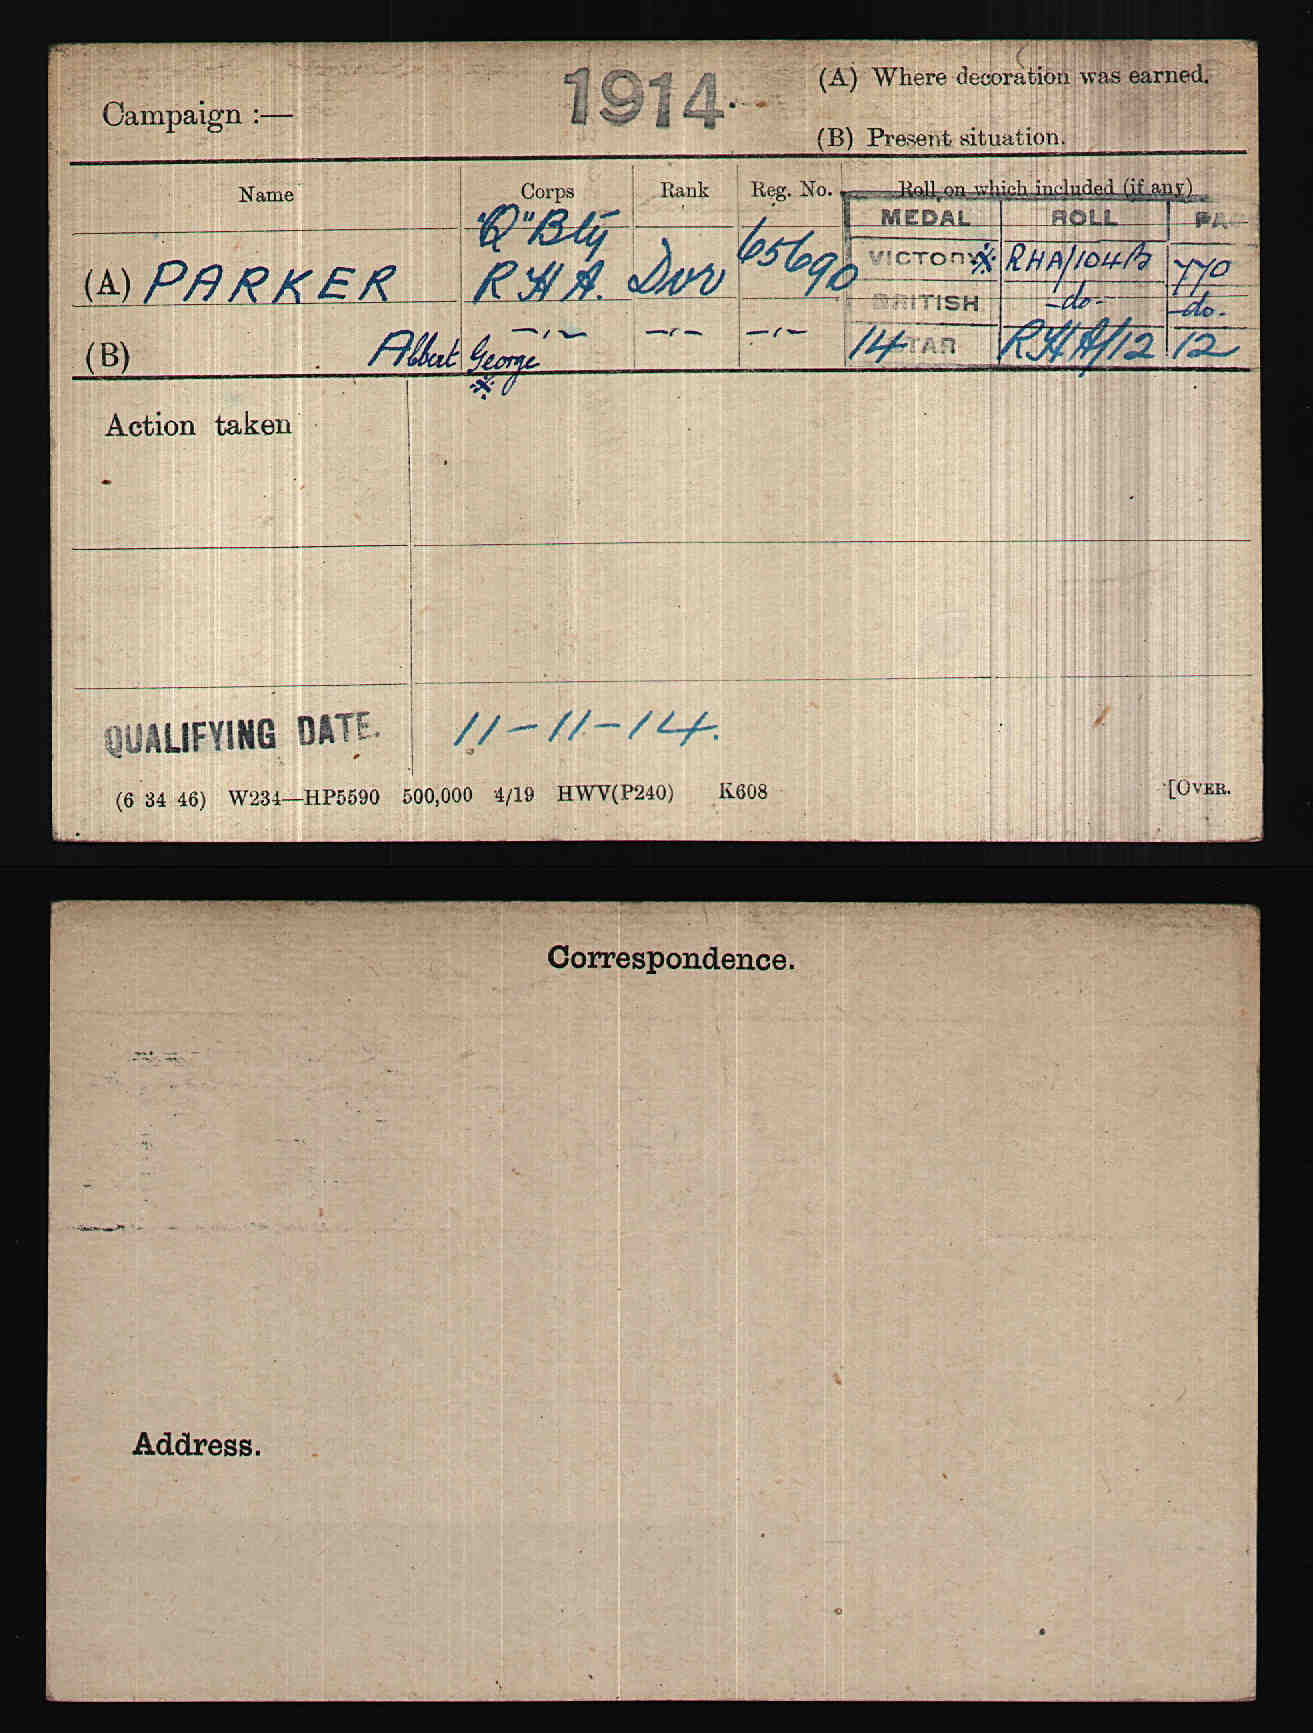 Campaign :— 1914. (A) Where decoration was earned.
(B) Present situation.
Name Corps Rank Reg. No. Roll on which included (if any)
"Q" Bty MEDAL ROLL PA
(A) PARKER R H A. Dvr 65690 VICTORY※ RHA/104B 770
BRITISH -do- -do-
(B) Albert George —〃— —〃— —〃— 14 STAR RHA/12 12
※
Action taken
QUALIFYING DATE. 11-11-14.
(6 34 46) W234—HP5590 500,000 4/19 HWV(P240) K608 [OVER.
Correspondence.
Address.